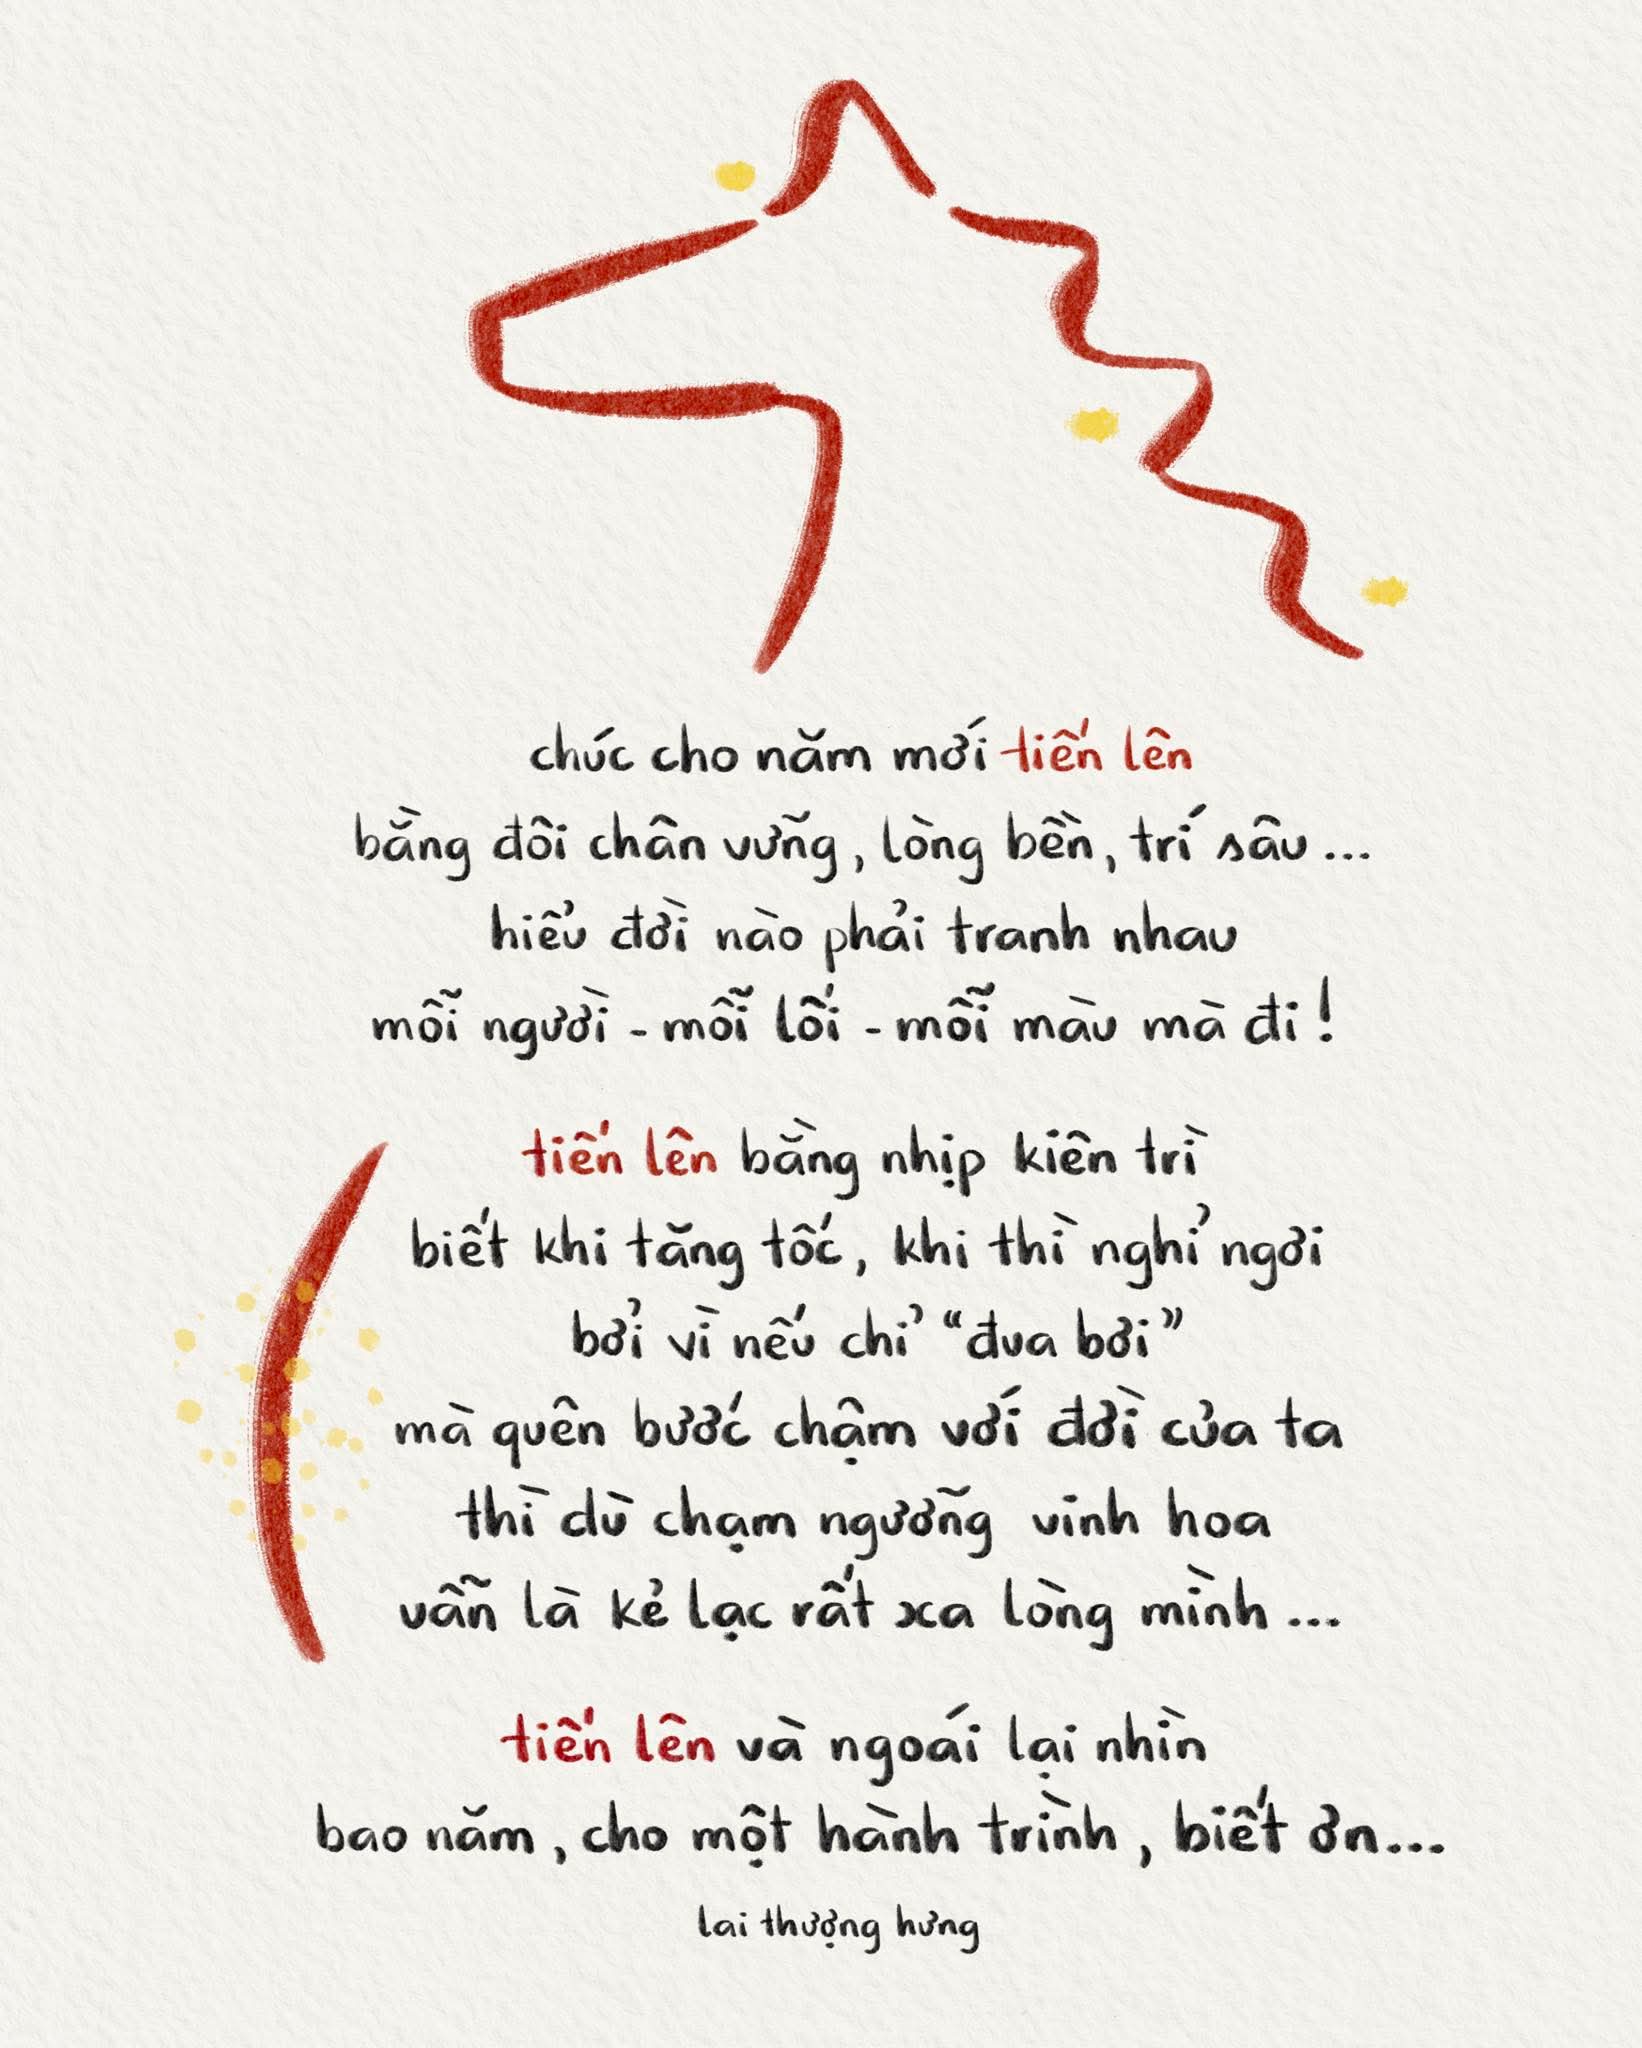 chúc cho năm mới tiến lên
bằng đôi chân vững, lòng bền, trí sâu...
hiểu đời nào phải tranh nhau
mỗi người - mỗi lối - mỗi màu mà đi!
tiến lên bằng nhịp kiên trì
biết khi tăng tốc, khi thì nghỉ ngơi
bởi vì nếu chỉ “đua bơi”
mà quên bước chậm với đời của ta
thì dù chạm ngưỡng vinh hoa
vẫn là kẻ lạc rất xa lòng mình...
tiến lên và ngoái lại nhìn
bao năm, cho một hành trình, biết ơn...
lai thượng hưng